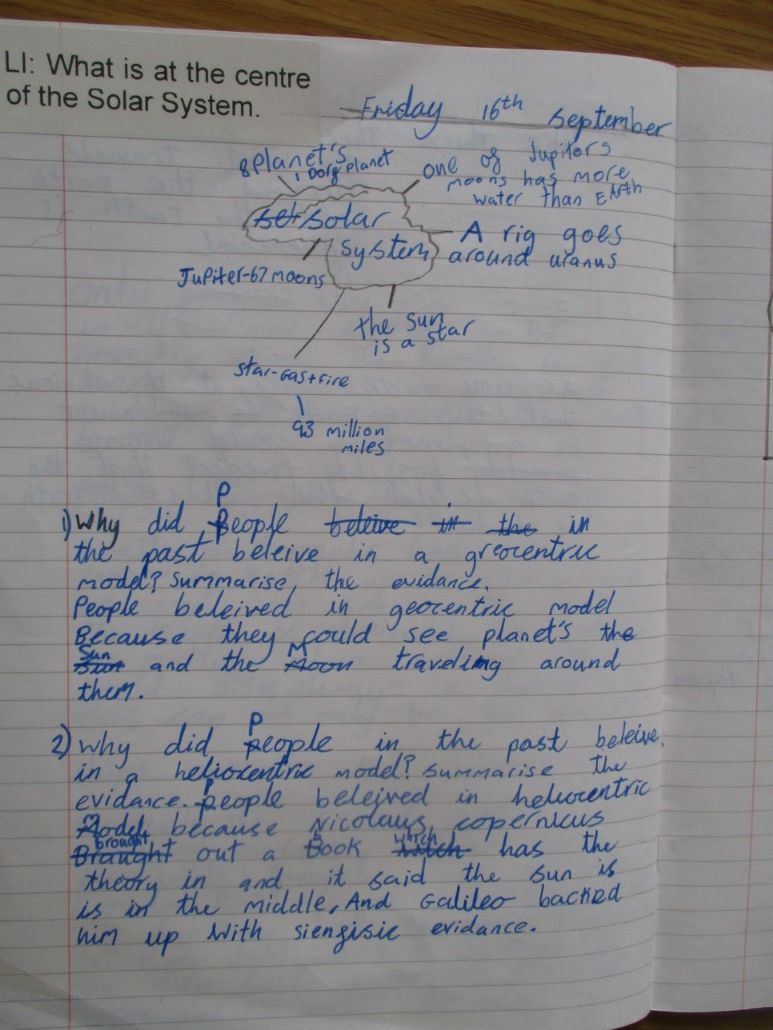 LI: What is at the centre
of the Solar System.
Friday 16th September
8 Planet's
1 Dorf Planet
one of Jupitors
moons has more
water than Earth
solar
system
A rig goes
around uranus
Jupiter-67 moons
the sun
is a star
star-Gas+fire
93 million
miles
1) Why did People beleive in the in
the past beleive in a greocentric
model? Summarise the evidance.
People beleived in geocentric model
Because they could see planet's the
Sun and the Moon traveling around
them.
2) Why did People in the past beleive
in a heliocentric model? Summarise the
evidance. People beleived in heliocentric
Model because Nicolaus copernicus
brought out a Book which has the
theory in and it said the sun is
is in the middle, And Galileo backed
him up with siengisic evidance.